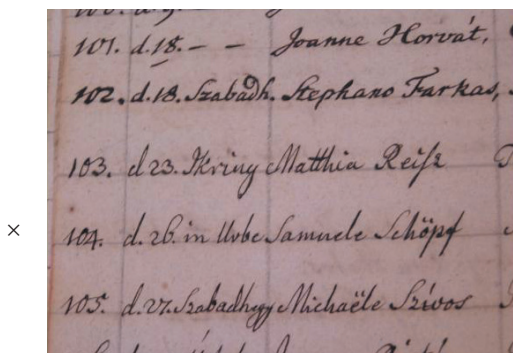 101. d. 18. – – Joanne Horvát,
102. d. 18. Szabadh. Stephano Farkas,
103. d 23. Ikriny Matthia Reisz
104. d. 26. in Urbe Samuele Schöpf
105. d. 27. Szabadhegy Michaële Szívos